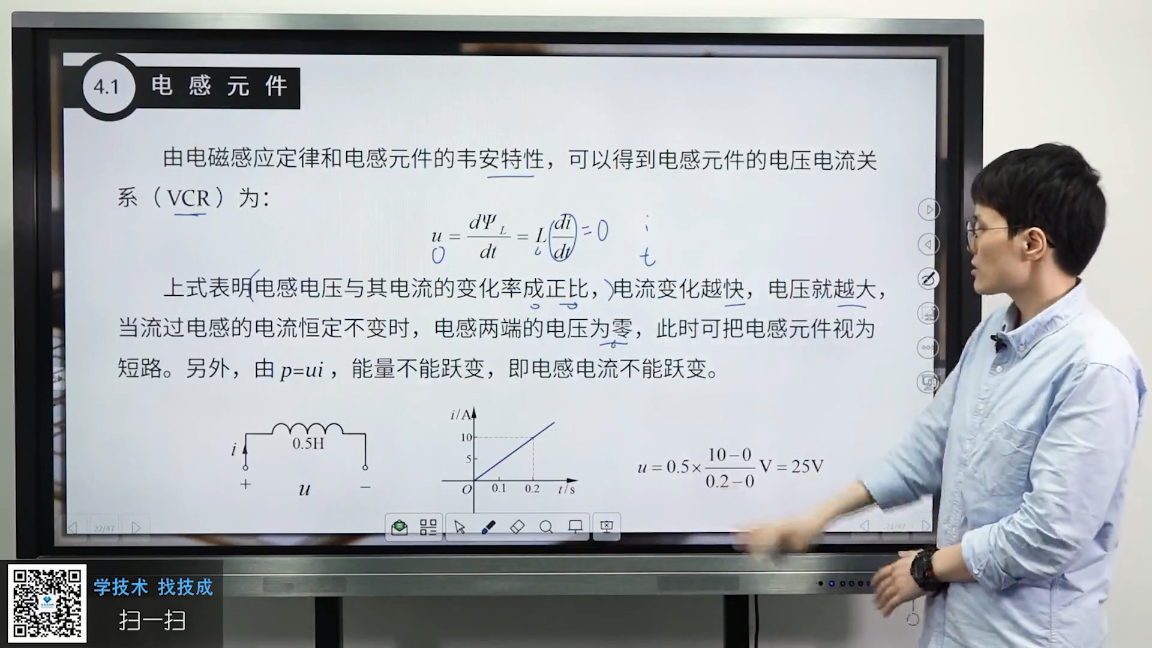 4.1 电感元件
由电磁感应定律和电感元件的韦安特性，可以得到电感元件的电压电流关
系（VCR）为：
u = dΨL/dt = L di/dt = 0
i
0
t
上式表明(电感电压与其电流的变化率成正比，)电流变化越快，电压就越大，
当流过电感的电流恒定不变时，电感两端的电压为零，此时可把电感元件视为
短路。另外，由 p=ui，能量不能跃变，即电感电流不能跃变。
i
0.5H
+ u −
i/A
10
5
O 0.1 0.2 t/s
u = 0.5× 10−0/0.2−0 V = 25V
学技术 找技成
扫一扫